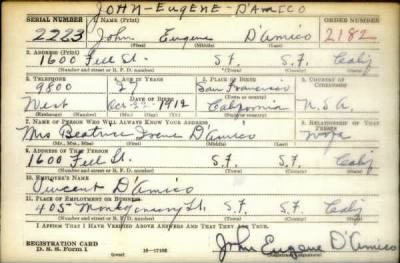 JOHN-EUGENE-D'AMICO
SERIAL NUMBER 1. NAME (Print) ORDER NUMBER
2223 John Eugene D'Amico 2182
(First) (Middle) (Last)
2. ADDRESS (Print)
1600 Fell St. S.F. S.F. Calif
(Number and street or R. F. D. number) (Town) (County) (State)
3. TELEPHONE 4. AGE IN YEARS 5. PLACE OF BIRTH 6. COUNTRY OF CITIZENSHIP
9800 27 San Francisco
DATE OF BIRTH (Town or county)
West Oct 1912 California U.S.A.
7. NAME OF PERSON WHO WILL ALWAYS KNOW YOUR ADDRESS 8. RELATIONSHIP OF THAT PERSON
Mrs Beatrice Irene D'Amico Wife
(Mr., Mrs., Miss) (First) (Middle) (Last)
9. ADDRESS OF THAT PERSON
1600 Fell St. S.F. S.F. Calif
(Number and street or R. F. D. number) (Town) (County) (State)
10. EMPLOYER'S NAME
Vincent D'Amico
11. PLACE OF EMPLOYMENT OR BUSINESS
405 Montgomery St. S.F. S.F. Calif
(Number and street or R. F. D. number) (Town) (County) (State)
I AFFIRM THAT I HAVE VERIFIED ABOVE ANSWERS AND THAT THEY ARE TRUE.
REGISTRATION CARD
D. S. S. Form 1 John Eugene D'Amico